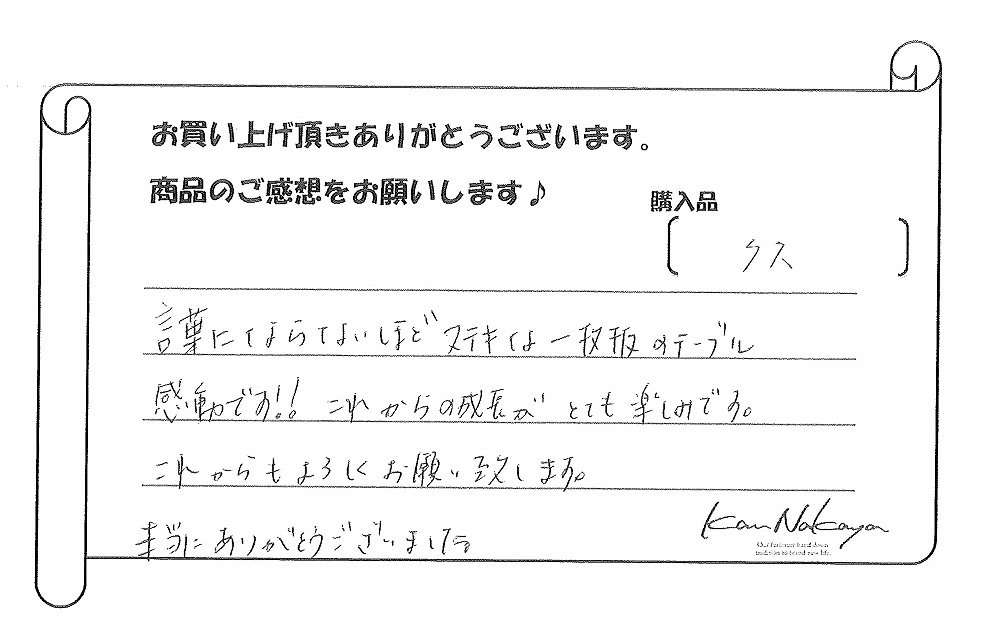 お買い上げ頂きありがとうございます。
商品のご感想をお願いします♪
購入品
クス
言葉にならないほどステキな一枚板のテーブル
感動です!! これからの成長がとても楽しみです。
これからもよろしくお願い致します。
本当にありがとうございました。
Kan Nakaya
Our furniture hand down
tradition to brand new life.